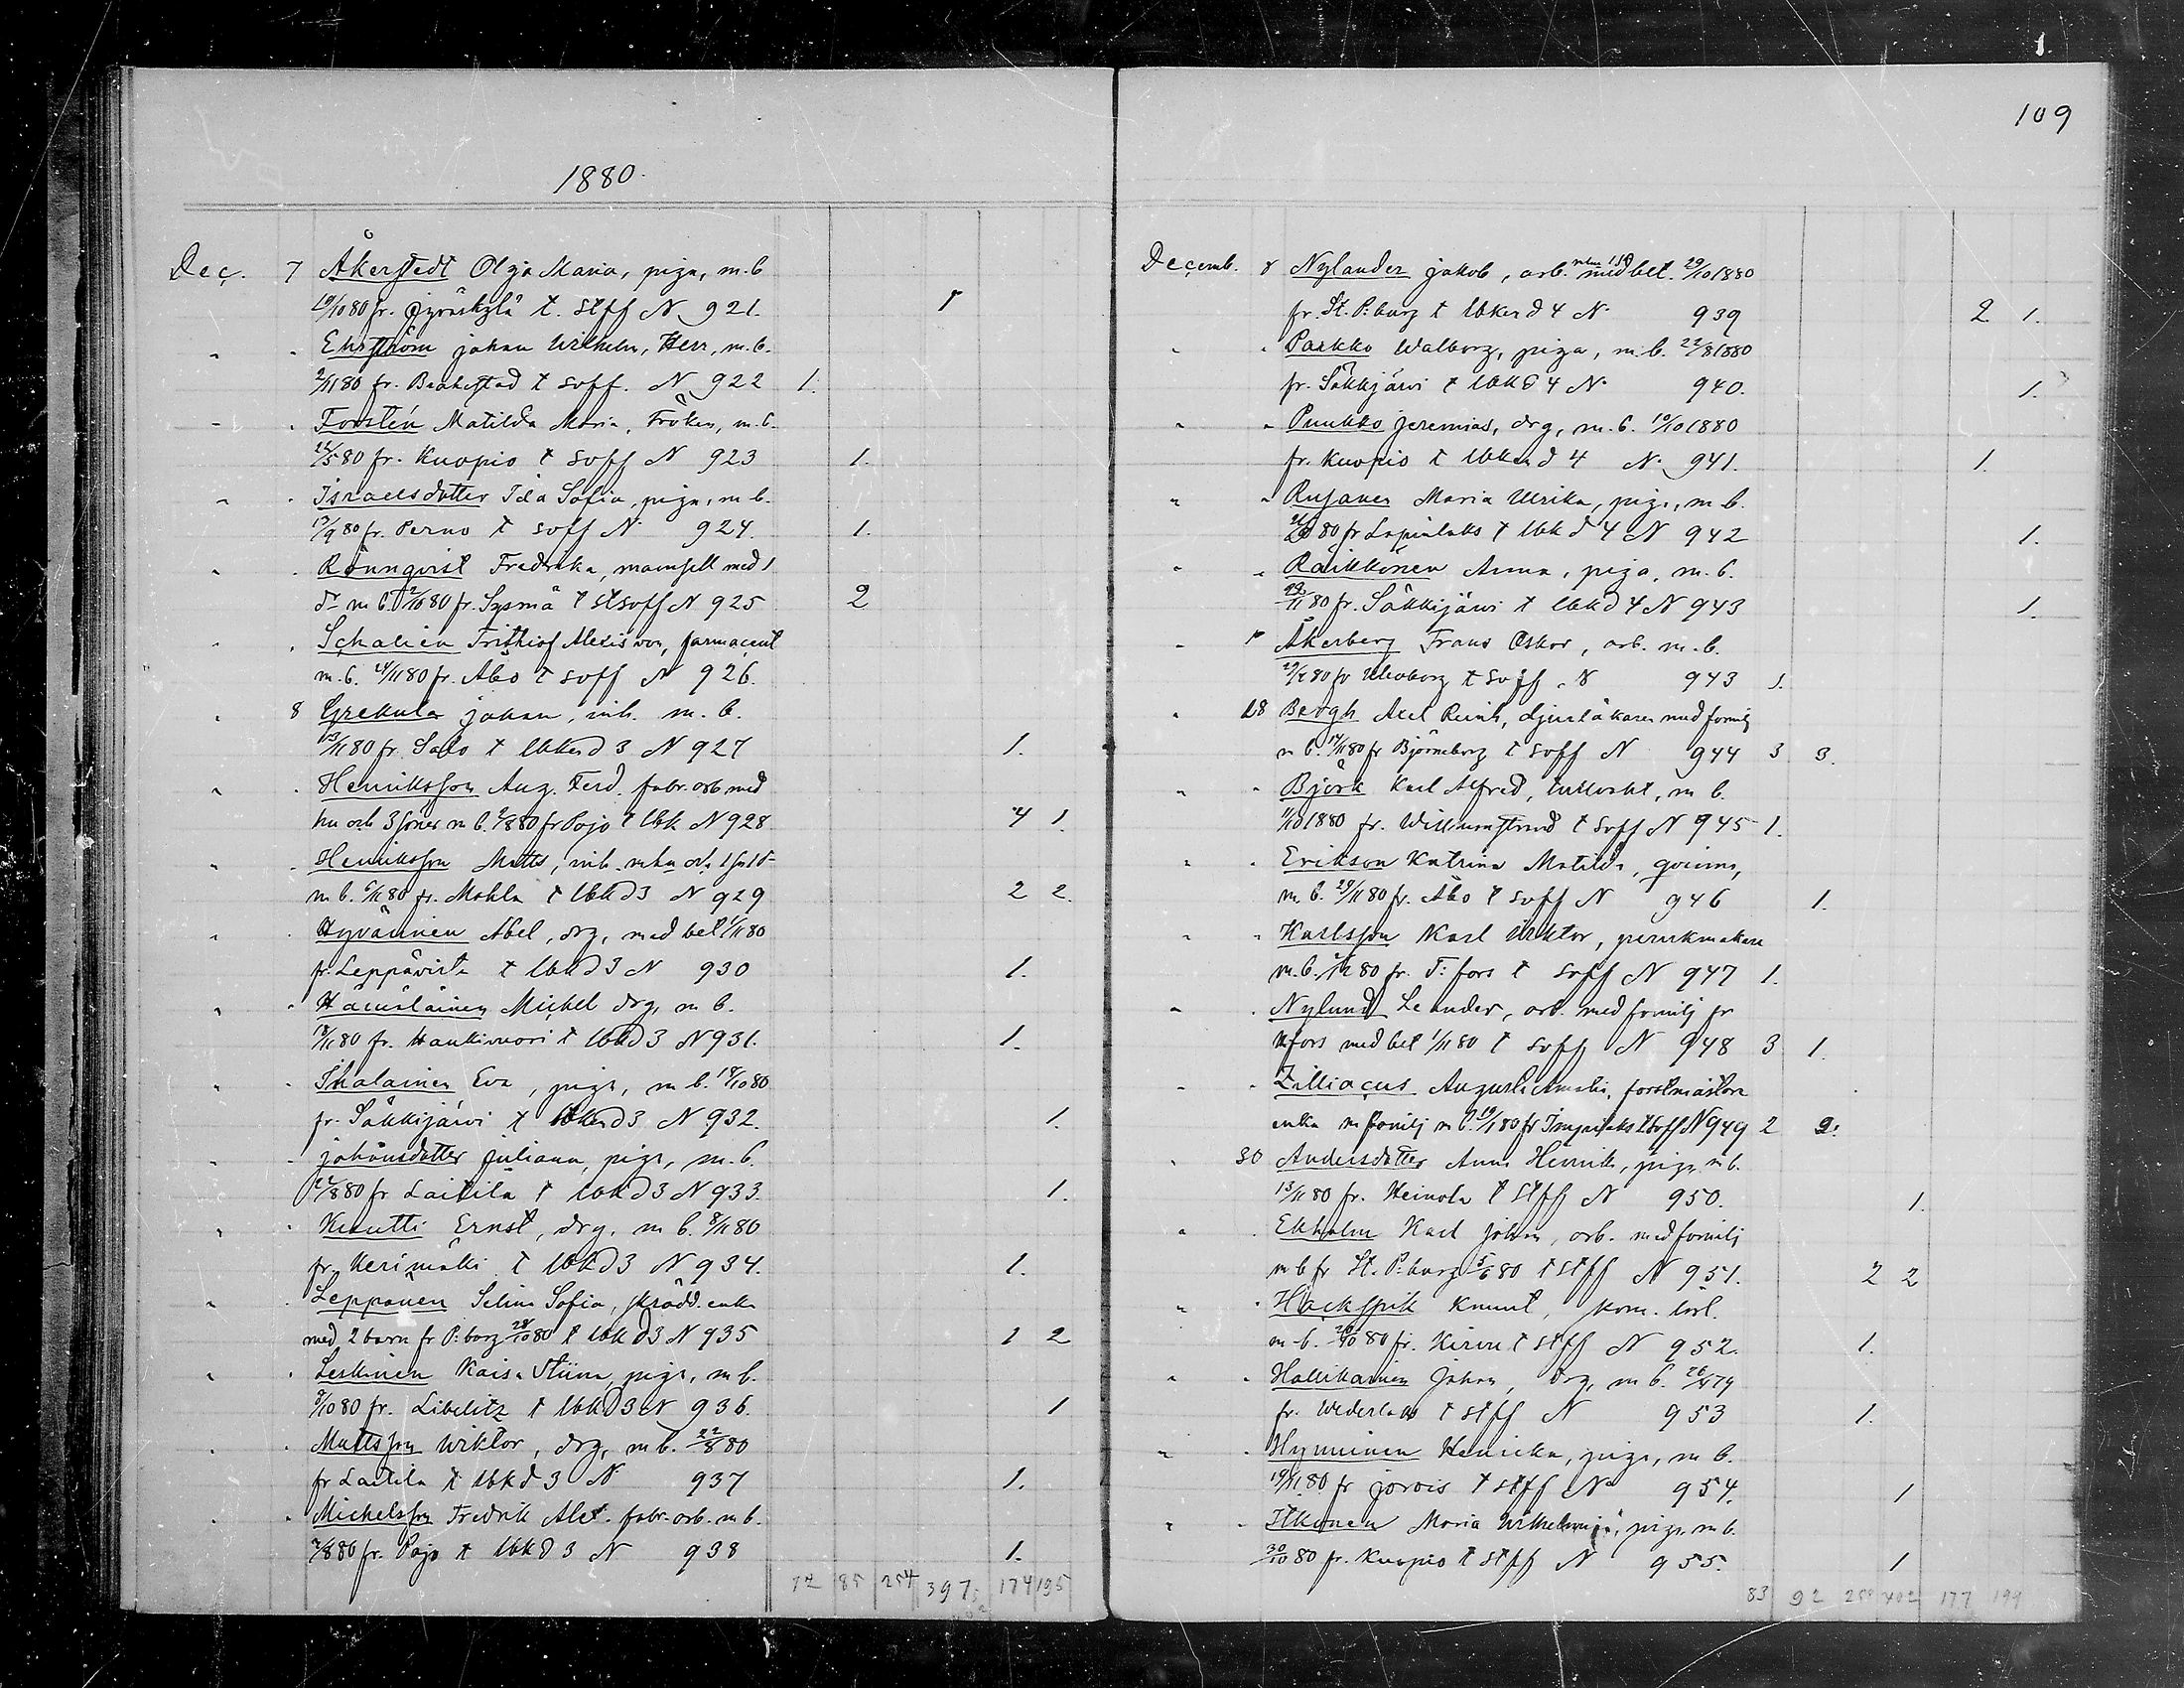 109
1880.
Dec. 7 Åkerstedt Olga Maria, piga, m.b
19/10 80 fr. Jyväskylä t. stff N 921. 1
" " Ehrström Johan Wilhelm, Herr, m.b.
2/11 80 fr. Brahestad t soff. N 922 1.
" " Forstén Matilda Maria, Fröken, m.b.
/5 80 fr. Kuopio t soff N 923 1.
" " Israelsdotter Ida Sofia, piga, m b.
13/9 80 fr. Perno t soff N 924. 1.
" " Rönnqvist Fredrika, mamsell med 1
dr m b. 2/10 80 fr. Sysmä t stsoff N 925 2
" " Schalien Frithiof Alexis von, farmaceut
m. b. 24/11 80 fr. Åbo t soff N 926.
" 8 Grekula Johan, inh. m. b.
13/11 80 fr. Salo t lbkend 3 N 927 1.
" " Henriksson Aug. Ferd. fabr. arb med
hu och 3 söner m b. 2/8 80 fr Pojo t lbk N 928. 4 1.
" " Henriksson Matts, inh. m hu och 1 s 1 dr
m b. 6/11 80 fr. Mohla t lbkd 3 N 929 2 2.
" " Hyvärinen Abel, drg, med bet 1/11 80
fr. Leppävirta t lbkd 3 N 930 1.
" " Hämäläinen Michel drg, m b.
18/11 80 fr. Haukivuori t lbkd 3 N 931. 1.
" " Ihalainen Eva, piga, m b. 18/10 80
fr. Säkkijärvi t lbkend 3 N 932. 1.
" " Johansdotter Juliana, piga, m. b.
22/8 80 fr Laitila t lbkd 3 N 933. 1.
" " Kuutti Ernst, drg, m b. 8/11 80
fr. Kerimäki t lbkd 3 N 934. 1.
" " Leppänen Selma Sofia, skrädd. enka
med 2 barn fr P:borg 28/10 80 t lbkd 3 N 935 1 2
" " Leskinen Kaisa Stiina, piga, m b.
9/10 80 fr. Libelitz t lbkd 3 N 936. 1
" " Mattsson Wiktor, drg, m b. 22/8 80
fr Laitila t lbkd 3 N 937 1.
" " Michelsson Fredrik Alex. fabr. arb. m b.
2/8 80 fr. Pojo t lbkd 3 N 938 1.
72 85 254 397 174 195
Decemb. 8 Nylander Jakob, arb. m hu 1 s med bet. 29/10 1880
fr. St. P:burg t lbkend 4 N. 939 2 1.
" " Parkko Walborg, piga, m. b. 22/8 1880
fr. Säkkjärvi t lbkd 4 N. 940. 1.
" " Puukko Jeremias, drg, m. b. 10/10 1880
fr. Kuopio t lbkend 4 N. 941. 1.
" " Rusanen Maria Ulrika, piga, m b.
80 fr Lapinlaks t lbkd 4 N 942 1.
" " Räikkönen Anna, piga, m. b.
29/11 80 fr. Säkkijärvi t lbkd 4 N 943 1.
" " Åkerberg Frans Oskar, arb. m. b.
80 fr Uleaborg t soff. N 943 1.
" 28 Bergh Axel Reinh, djurläkaren med familj
m b. 17/11 80 fr Björneborg t soff N 944 3 3.
" " Björk Karl Alfred, tullvakt, m b.
11/10 1880 fr. Willmanstrand t soff N 945 1.
" " Erikson Katrina Matilda, qvinna,
m. b. 29/11 80 fr. Åbo t soff N 946 1.
" " Karlsson Karl Wiktor, perukmakare
m. b. 80 fr. T:fors t soff N 947 1.
" " Nylund Leander, arb. med familj fr
Hfors med bet 1/11 80 t soff N 948 3 1.
" " Zilliacus Augusta Amalia, forstmästare
enka m familj m b. 80 fr Impilaks t soff N 949 2 2.
" 30 Andersdotter Anna Henrika, piga m b.
13/11 80 fr. Heinola t stff N 950. 1.
" " Ekholm Karl Johan, arb. med familj
m b fr St. P:burg 5/6 80 t stff N 951. 2 2
" " Häckspik Knuut, kom. lösl.
m. b. 20/10 80 fr. Kirvu t stff N 952. 1.
" " Hallikainen Johan, drg, m b. 79
fr. Wederlaks t stff N 953 1.
" " Hynninen Henrika, piga, m b.
19/11 80 fr Jorois t stff N 954. 1
" " Itkonen Maria Wilhelmina, piga m b.
30/10 80 fr. Kuopio t stff N 955. 1
83 92 402 177 199